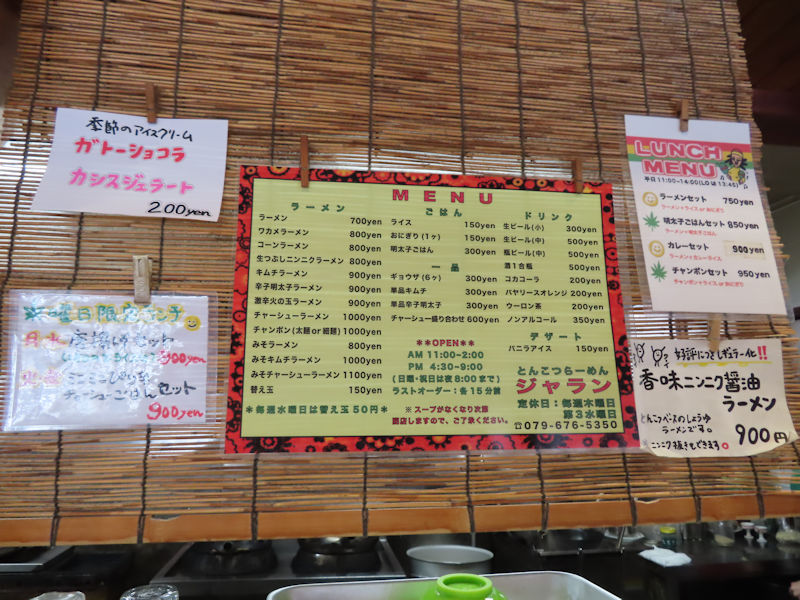 季節のアイスクリーム
ガトーショコラ
カシスジェラート
200yen
曜日限定ランチ
セット
900yen
ミニミニ
チャーシューごはんセット
900yen
MENU
ラーメン
ラーメン 700yen
ワカメラーメン 800yen
コーンラーメン 800yen
生つぶしニンニクラーメン 800yen
キムチラーメン 900yen
辛子明太子ラーメン 900yen
激辛火の玉ラーメン 900yen
チャーシューラーメン 1000yen
チャンポン(太麺or細麺) 1000yen
みそラーメン 800yen
みそキムチラーメン 1000yen
みそチャーシューラーメン 1100yen
替え玉 150yen
*毎週水曜日は替え玉50円*
ごはん
ライス 150yen
おにぎり(1ヶ) 150yen
明太子ごはん 300yen
一品
ギョウザ(6ヶ) 300yen
単品キムチ 300yen
単品辛子明太子 300yen
チャーシュー盛り合わせ 600yen
**OPEN**
AM 11:00~2:00
PM 4:30~9:00
(日曜・祝日は夜8:00まで)
ラストオーダー:各15分前
※スープがなくなり次第
閉店しますので、ご了承ください。
ドリンク
生ビール(小) 300yen
生ビール(中) 500yen
瓶ビール(中) 500yen
酒1合瓶 500yen
コカコーラ 200yen
バヤリースオレンジ 200yen
ウーロン茶 200yen
ノンアルコール 350yen
デザート
バニラアイス 150yen
とんこつらーめん
ジャラン
定休日:毎週水曜日
第3木曜日
☎079-676-5350
LUNCH
MENU
平日11:00~14:00(LOは13:45)
ラーメンセット 750yen
ラーメン+ライス or おにぎり
明太子ごはんセット 850yen
ラーメン+明太子ごはん
カレーセット 900yen
ラーメン+カレーライス
チャンポンセット 950yen
チャンポン+ライス or おにぎり
好評につきレギュラー化!!
香味ニンニク醤油
ラーメン
とんこつベースのしょうゆ
ラーメンです。
ニンニク抜きもできます。
900円